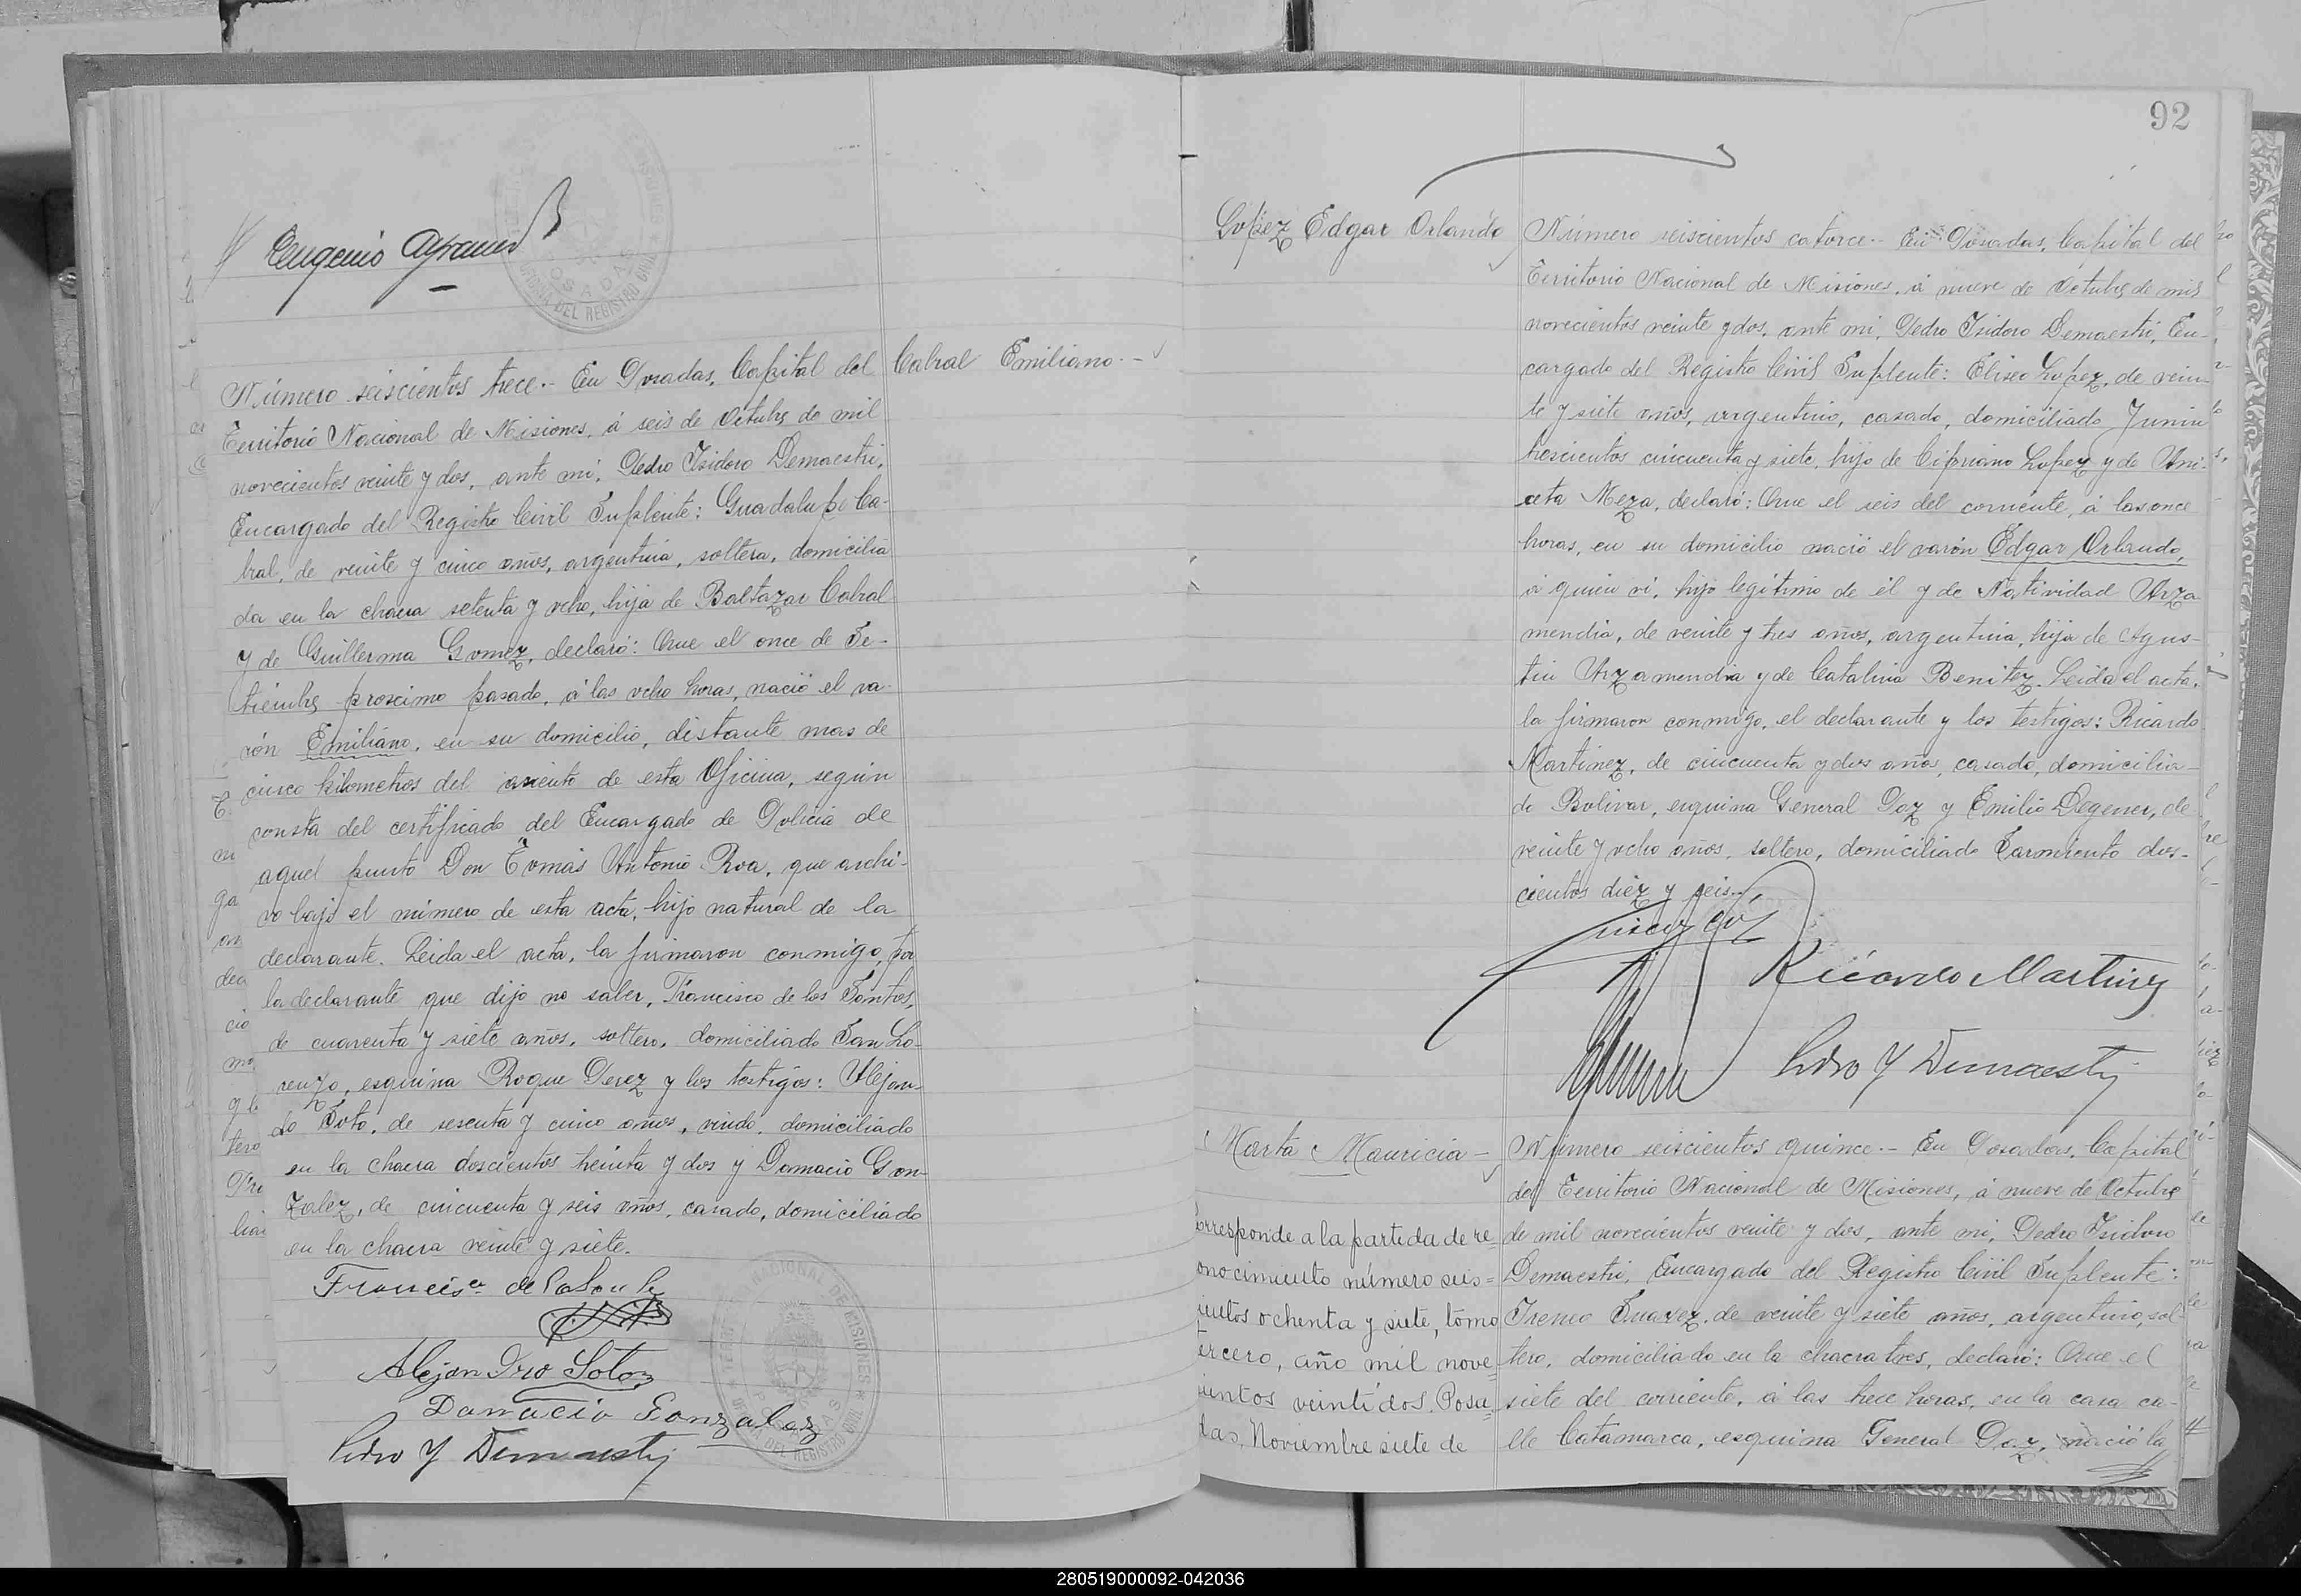 Eugenio
Número seiscientos trece.- En Posadas, Capital del
Cabral Emiliano.-
Territorio Nacional de Misiones, á seis de Octubre de mil
novecientos veinte y dos, ante mi, Pedro Isidoro Demaestri,
Encargado del Registro Civil Suplente: Guadalupe Ca-
bral, de veinte y cinco años, argentina, soltera, domicilia
da en la chacra setenta y ocho, hija de Baltazar Cabral
y de Guillerma Gomez, declaró: Que el once de Se-
tiembre proscimo pasado, á las ocho horas, nació el va-
rón Emiliano, en su domicilio, distante mas de
cinco kilometros del asiento de esta Oficina, según
consta del certificado del Encargado de Policia de
aquel punto Don Tomás Antonio Roa, que archi-
vo bajo el número de esta acta, hijo natural de la
declarante. Leida el acta, la firmaron conmigo, por
la declarante que dijo no saber, Francisco de los Santos,
de cuarenta y siete años, soltero, domiciliado San Lo-
renzo, esquina Roque Perez y los testigos: Alejan-
do Soto, de sesenta y cinco años, viudo, domiciliado
en la chacra doscientos treinta y dos y Damacio Gon-
zalez, de cincuenta y seis años, casado, domiciliado
en la chacra veinte y siete.
Alejandro Soto
Damacio Gonzalez
Pedro Y Demaestri
92
Lopez Edgar Orlando
Número seiscientos catorce.- En Posadas, Capital del
Territorio Nacional de Misiones, á nueve de Octubre de mil
novecientos veinte y dos, ante mi, Pedro Isidoro Demaestri, En-
cargado del Registro Civil Suplente: Eliseo Lopez, de vein-
te y siete años, argentino, casado, domiciliado Junin
trescientos cincuenta y siete, hijo de Cipriano Lopez y de Ani-
ceta Meza, declaró: Que el seis del corriente, á las once
horas, en su domicilio nació el varón Edgar Orlando,
á quien vi, hijo legitimo de él y de Natividad Arza
mendia, de veinte y tres años, argentina, hija de Agus-
tin Arzamendia y de Catalina Benitez. Leida el acta,
la firmaron conmigo, el declarante y los testigos: Ricardo
Martinez, de cincuenta y dos años, casado, domicilia-
do Bolivar, esquina General Paz y Emilio Degener, de
veinte y ocho años, soltero, domiciliado Sarmiento dos-
cientos diez y seis.
Ricardo Martinez
Pedro Y Demaestri
Marta Mauricia -
Número seiscientos quince.- En Posadas, Capital
del Territorio Nacional de Misiones, á nueve de Octubre
de mil novecientos veinte y dos, ante mi, Pedro Isidoro
Demaestri, Encargado del Registro Civil Suplente:
Ireneo Suarez, de veinte y siete años, argentino, sol-
tero, domiciliado en la chacra tres, declaró: Que el
siete del corriente, á las trece horas, en la casa ca-
lle Catamarca, esquina General Paz, nació la
orresponde a la partida de re-
onocimiento número seis=
ientos ochenta y siete, tomo
ercero, año mil nove-
ientos veintidos. Posa=
das, Noviembre siete de
280519000092-042036